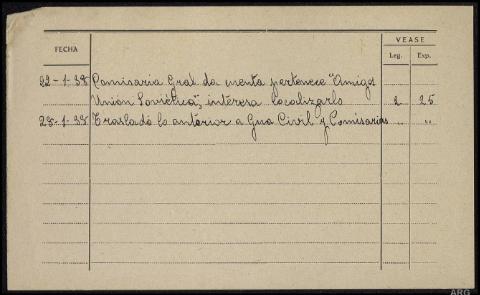 FECHA
VEASE
Leg. Exp.
22-1-38 Comisaria Gral da cuenta pertenece "Amigos
Unión Soviética", interesa localizarlo 2 25
28-1-38 Traslado lo anterior a Gua Civil y Comisarias " "
ARG